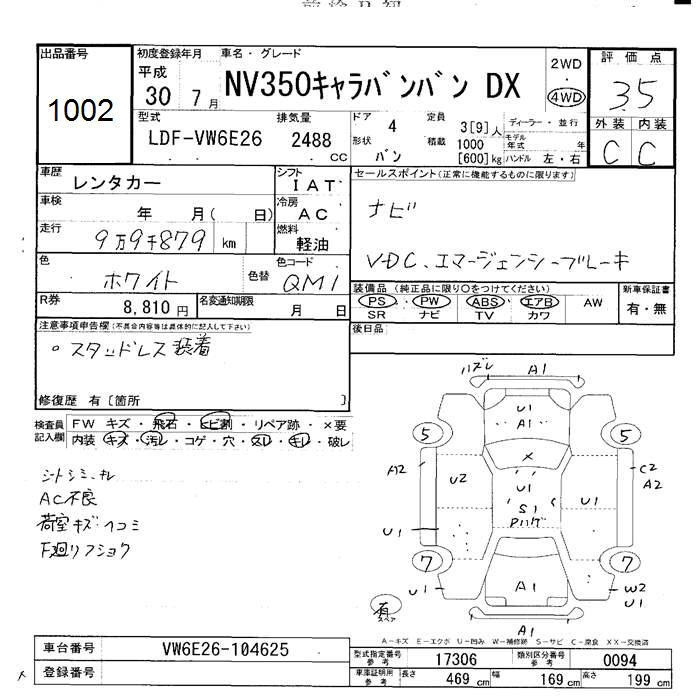 出品番号
1002
初度登録年月
平成
30 7月
車名・グレード
NV350キャラバンバン DX
2WD
・
4WD
評価点
3.5
外装 内装
C C
型式
LDF-VW6E26
排気量
2488 CC
ドア 4
形状 バン
定員 3[9]人
積載 1000 [600]kg
ディーラー・並行
モデル年式 年
ハンドル 左・右
車歴
レンタカー
シフト
IAT
車検
年 月( 日)
冷房
AC
走行
9万9千879 km
燃料
軽油
色
ホワイト
色替
色コード
QM1
R券
8,810円
名変通知期限
月 日
セールスポイント(正常に機能するものに限ります)
ナビ
VDC、エマージェンシーブレーキ
装備品(純正品に限り○をつけてください)
PS PW ABS エアB AW
SR ナビ TV カワ
新車保証書
有・無
後日品
注意事項申告欄(不具合内容等は具体的に記入して下さい)
○スタッドレス装着
修復歴 有[箇所 ]
検査員記入欄
FW キズ・飛石・ヒビ割・リペア跡・×要
内装 キズ・汚レ・コゲ・穴・スレ・キレ・破レ
シートシミ、キレ
AC不良
荷室キズ・ヘコミ
下廻リフショク
ハズレ
A1
U1
A1
5
5
×
A2
U2
U1
S1
Pハゲ
U1
C2
A2
U1
7
7
U1
A1
W2
U1
有
スペア
A1
A-キズ E-エクボ U-凹み W-補修跡 S-サビ C-腐食 XX-交換済
車台番号
VW6E26-104625
登録番号
型式指定番号 参考
17306
類別区分番号 参考
0094
車庫証明用 参考
長さ 469 cm
幅 169 cm
高さ 199 cm